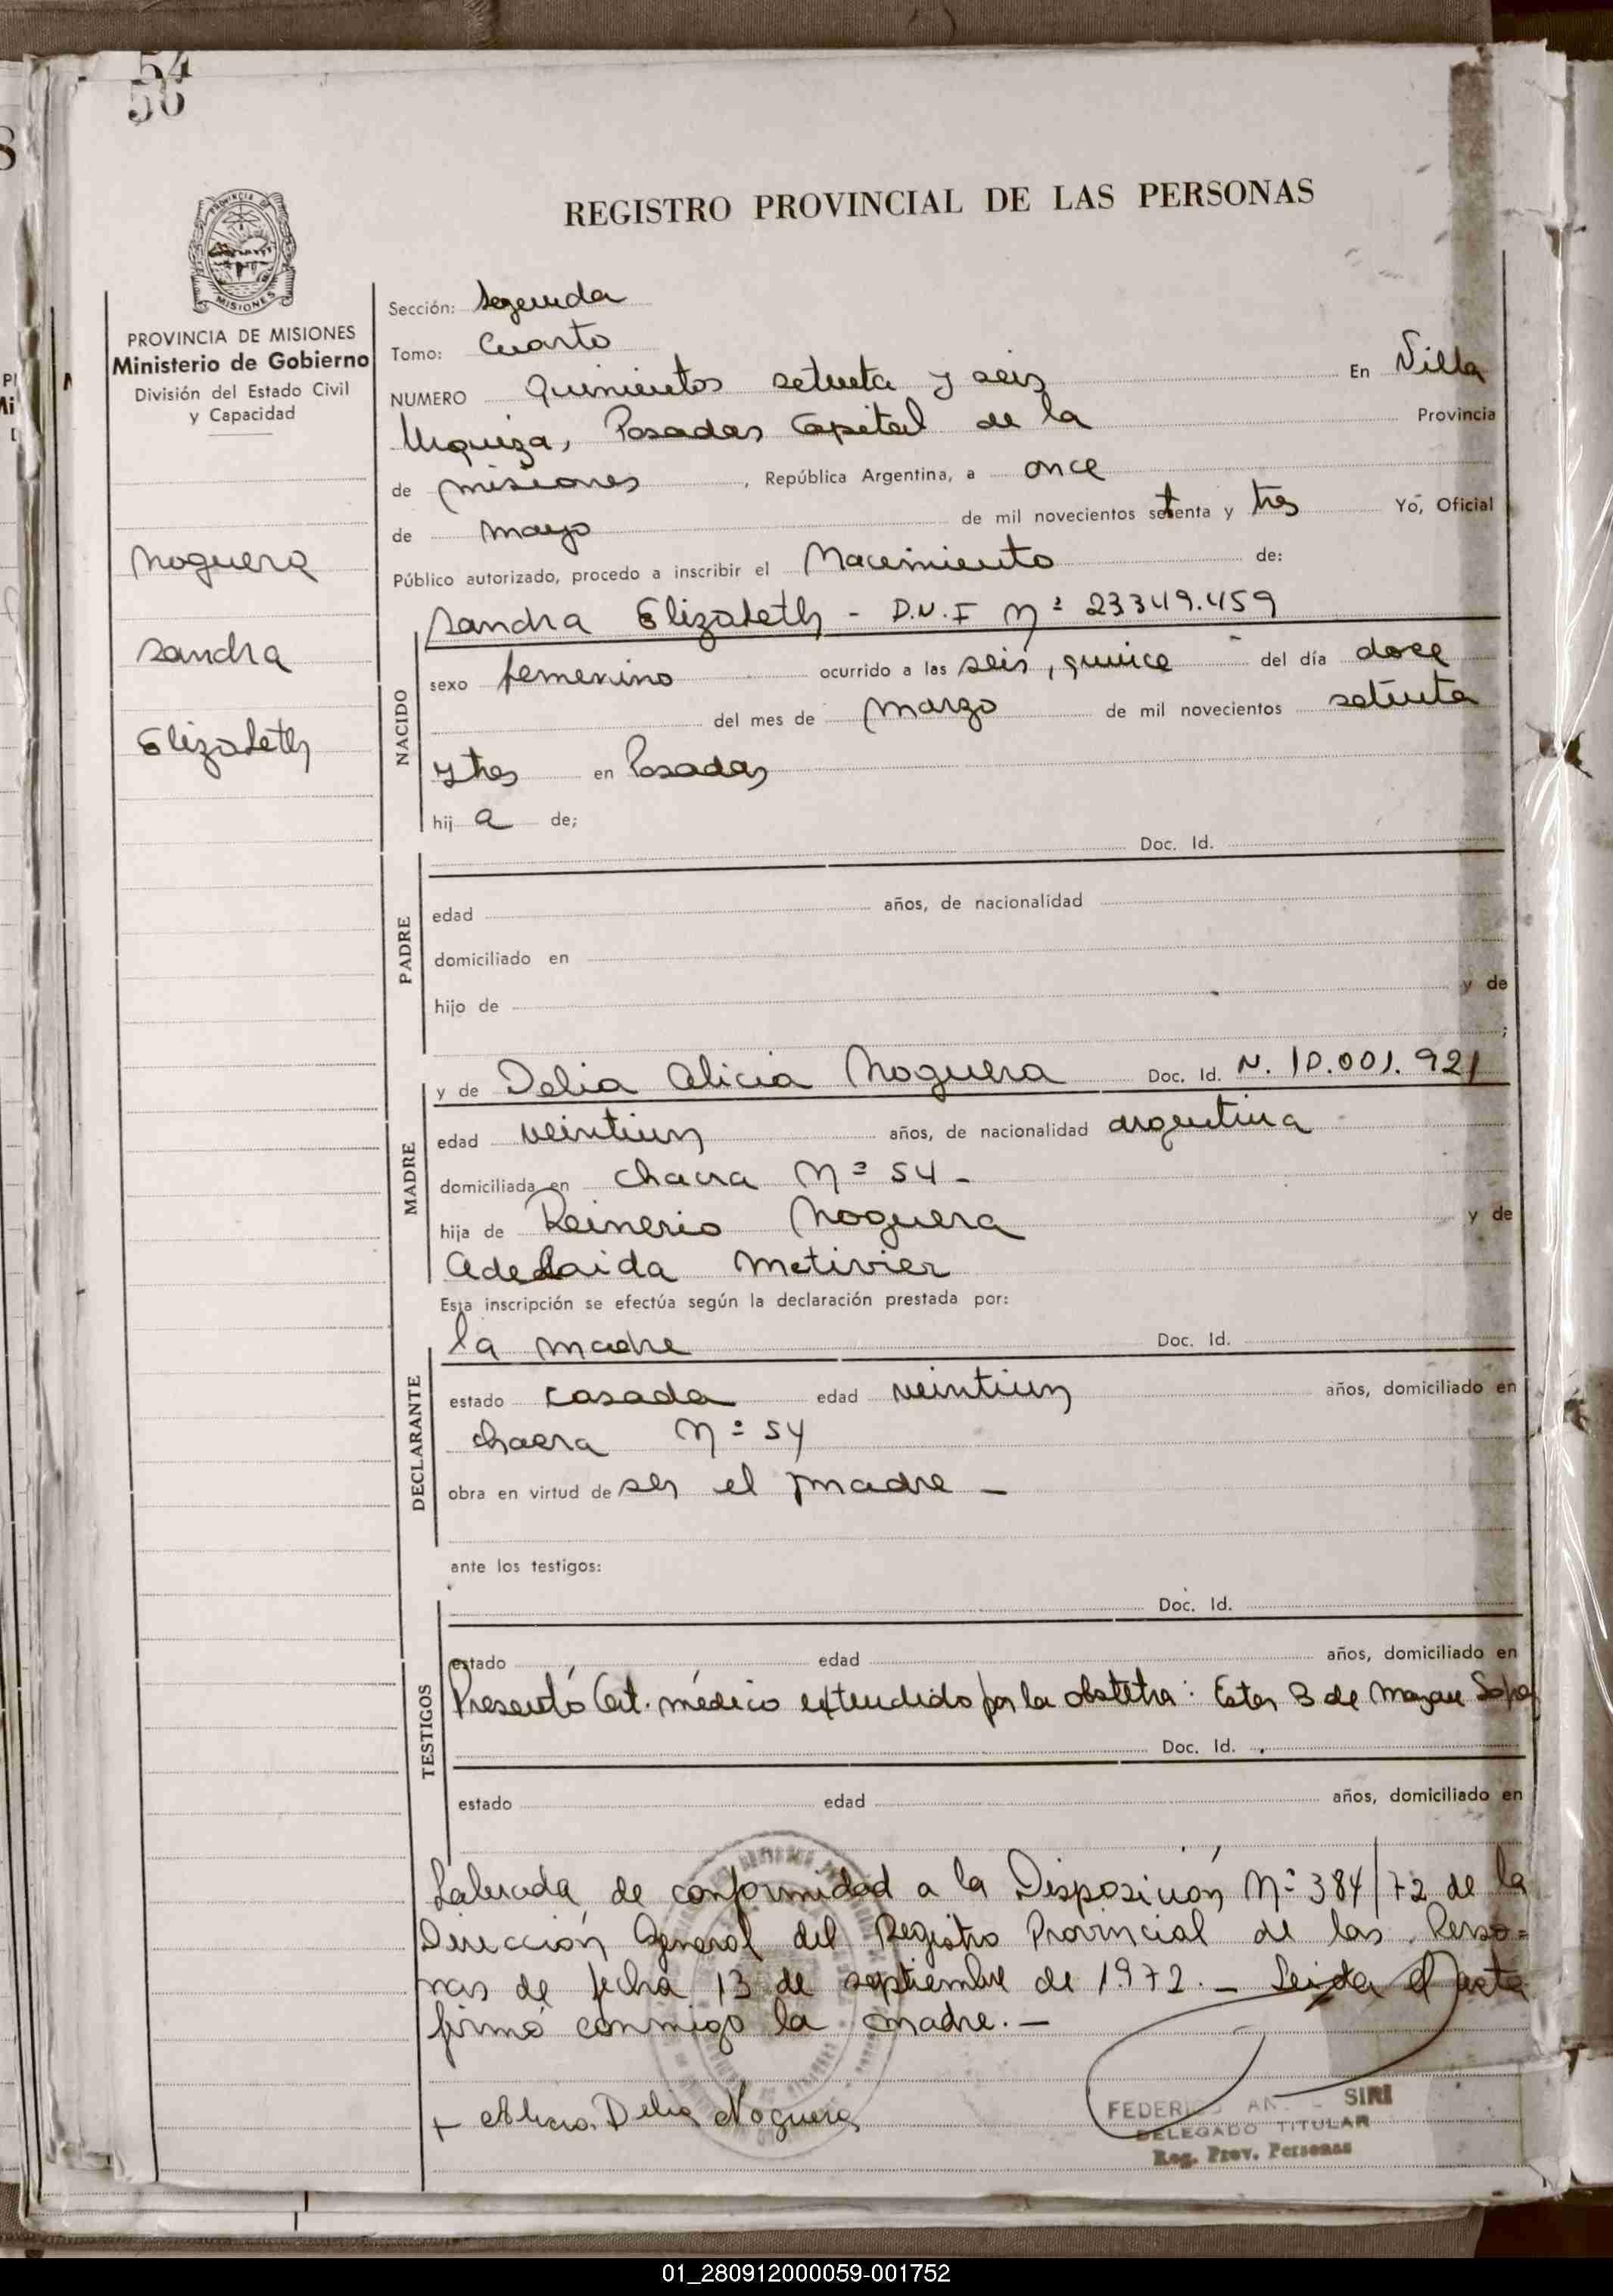 54
56
REGISTRO PROVINCIAL DE LAS PERSONAS
MISIONES
PROVINCIA DE MISIONES
Ministerio de Gobierno
División del Estado Civil
y Capacidad
Noguera
Sandra
Elizabeth
Sección: Segunda
Tomo: Cuarto
NUMERO Quinientos setenta y seis En Villa
Urquiza, Posadas Capital de la Provincia
de misiones, República Argentina, a once
de mayo de mil novecientos setenta y tres Yo, Oficial
Público autorizado, procedo a inscribir el Nacimiento de:
Sandra Elizabeth - D.N.I Nº 23349.459
NACIDO
sexo femenino ocurrido a las seis, quince del día doce
del mes de marzo de mil novecientos setenta
y tres en Posadas
hij a de;
Doc. Id.
PADRE
edad años, de nacionalidad
domiciliado en
hijo de y de
;
MADRE
y de Delia Alicia Noguera Doc. Id. N. 10.001.921
edad veintiun años, de nacionalidad argentina
domiciliada en chacra Nº 54 -
hija de Reinerio Noguera y de
Adelaida Metivier
Esta inscripción se efectúa según la declaración prestada por:
DECLARANTE
la madre Doc. Id.
estado casada edad veintiun años, domiciliado en
chacra Nº 54
obra en virtud de ser el madre -
ante los testigos:
TESTIGOS
Doc. Id.
estado edad años, domiciliado en
Presentó Cert. médico extendido por la obstetra: Ester B de
Doc. Id.
estado edad años, domiciliado en
Labrada de conformidad a la Disposición Nº 384/72 de la
Dirección General del Registro Provincial de las Perso=
nas de fecha 13 de septiembre de 1972. - Leida el acta
firmó conmigo la madre. -
+ Alicia Delia Noguera
SIRI
DELEGADO TITULAR
Reg. Prov. Personas
01_280912000059-001752